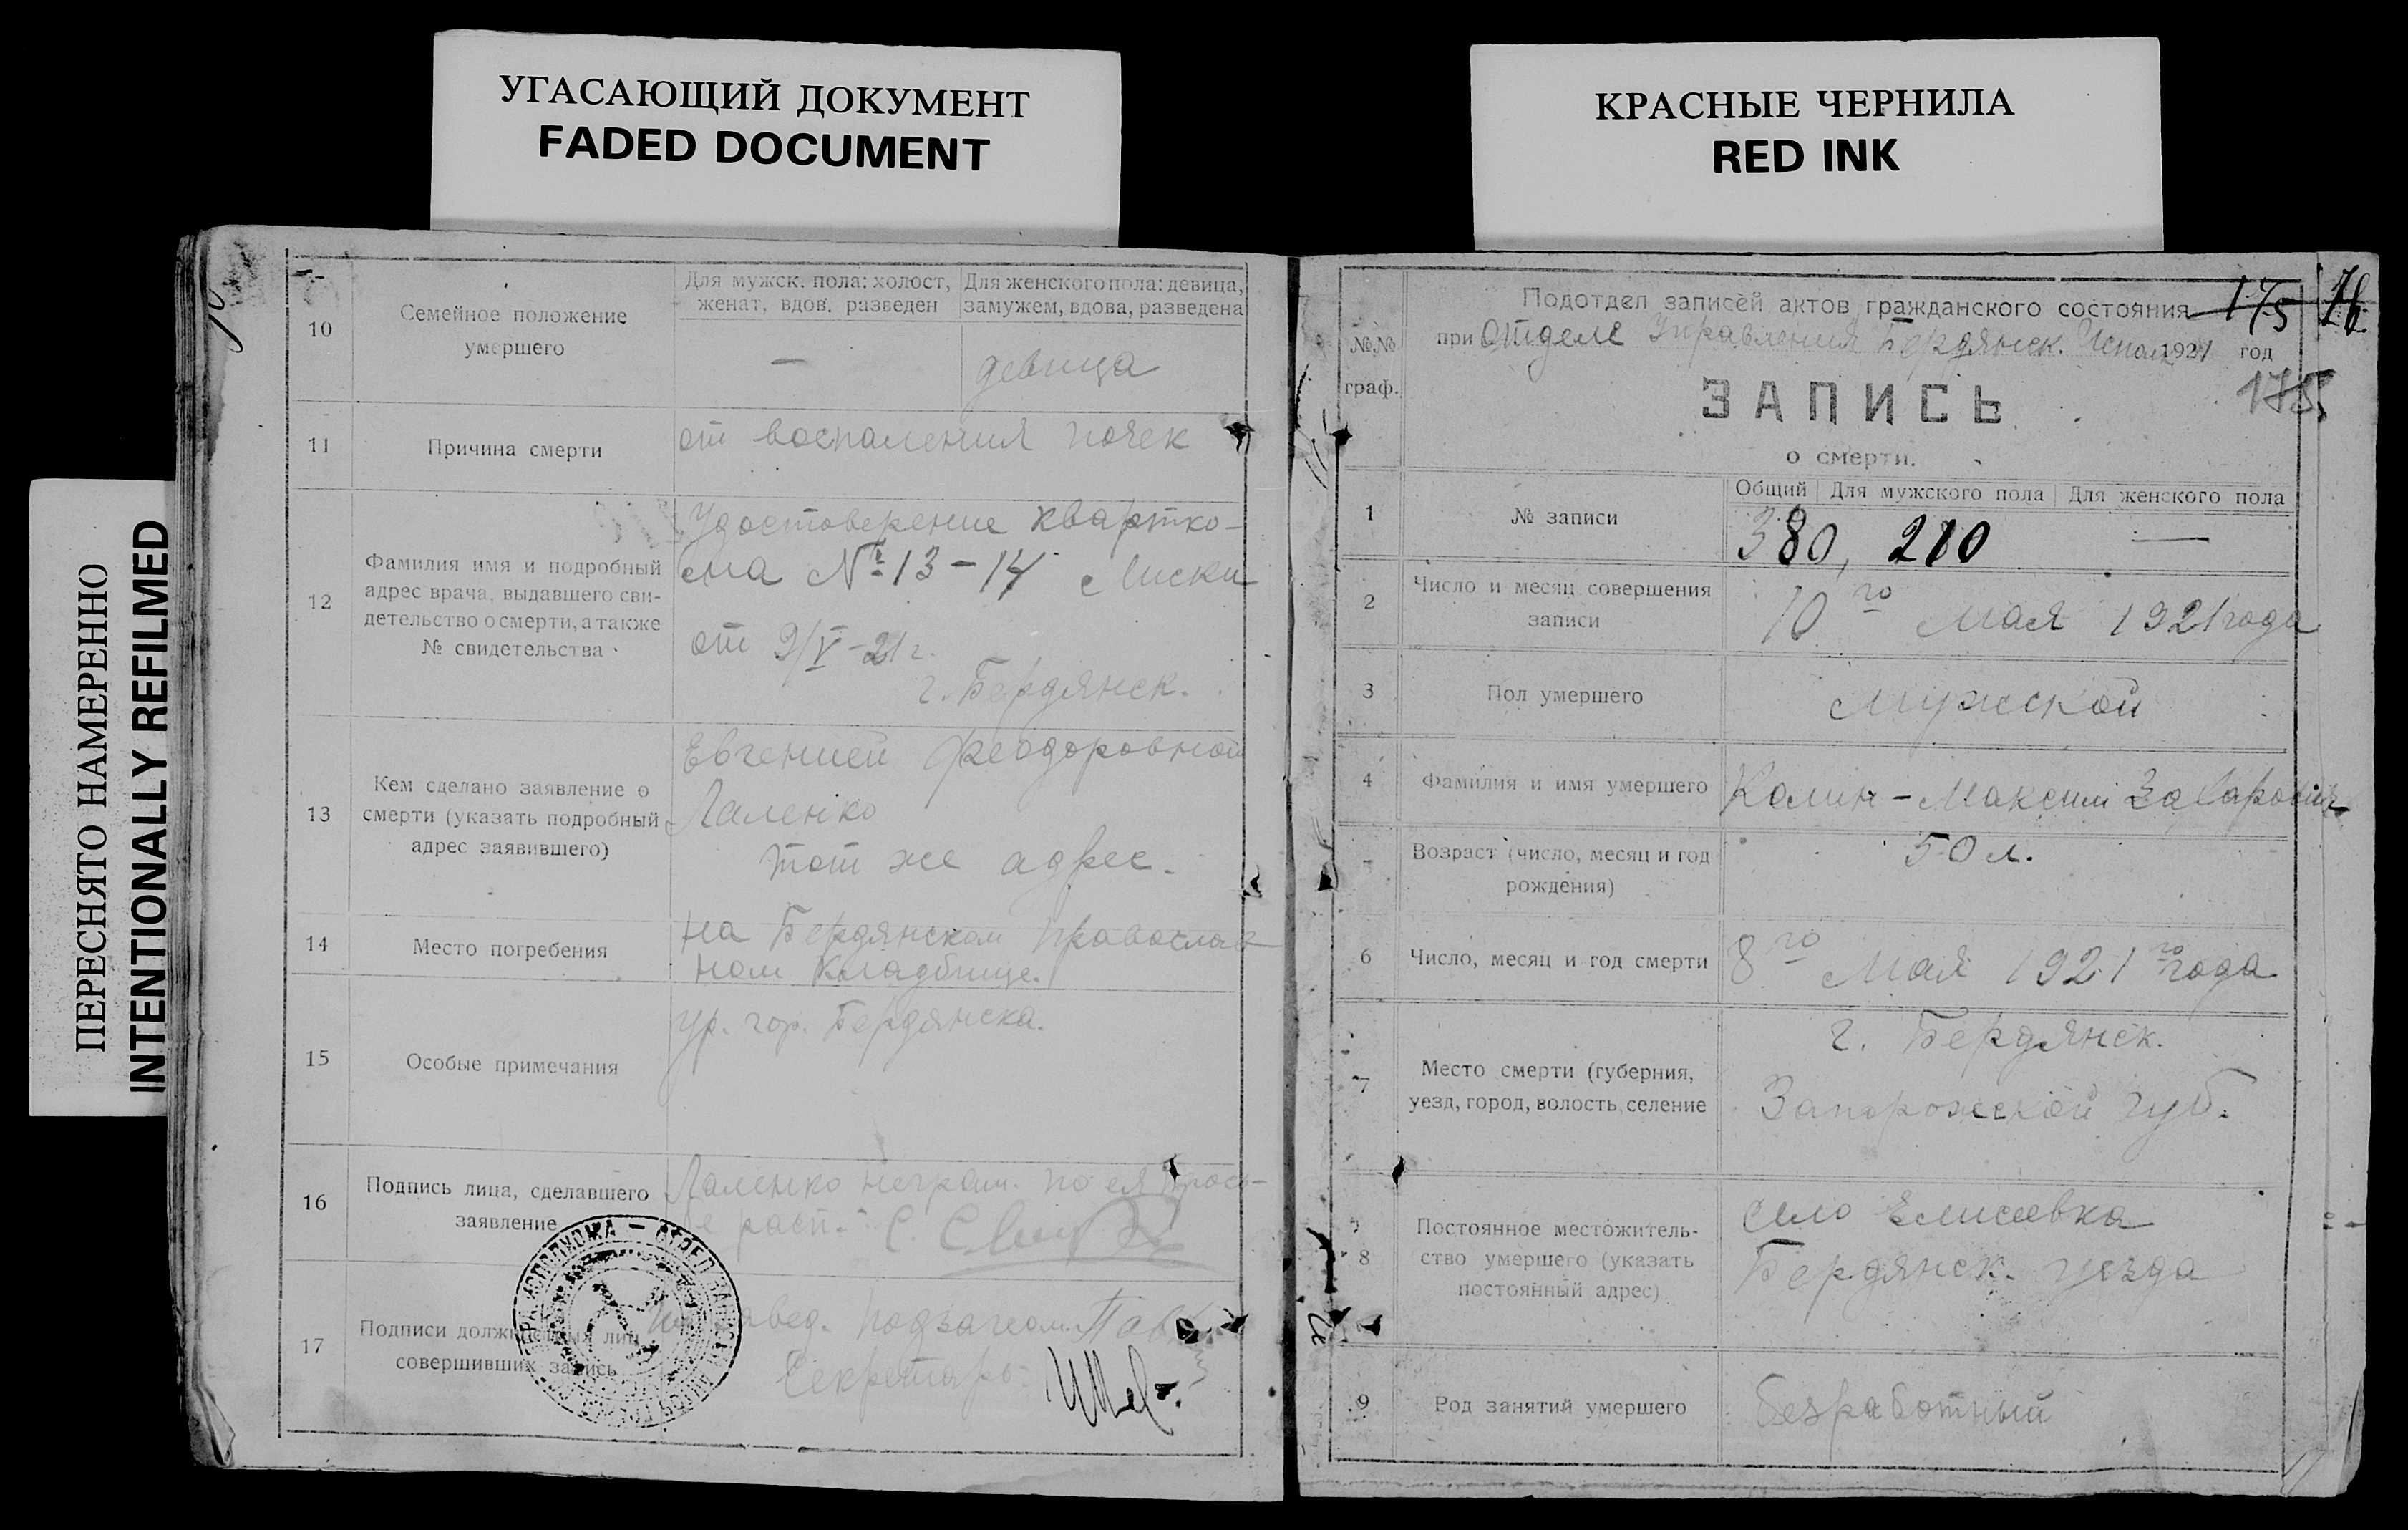 УГАСАЮЩИЙ ДОКУМЕНТ
FADED DOCUMENT
КРАСНЫЕ ЧЕРНИЛА
RED INK
ПЕРЕСНЯТО НАМЕРЕННО
INTENTIONALLY REFILMED
10
Семейное положение
умершего
Для мужск. пола: холост,
женат, вдов. разведен
Для женского пола: девица,
замужем, вдова, разведена
—
девица
11
Причина смерти
от воспаления почек
12
Фамилия имя и подробный
адрес врача, выдавшего сви-
детельство о смерти, а также
№ свидетельства
Удостоверение квартко-
ма № 13-14 Лиски
от 9/V-21 г.
г. Бердянск.
13
Кем сделано заявление о
смерти (указать подробный
адрес заявившего)
Евгенией Феодоровной
Паленко
тот же адрес.
14
Место погребения
на Бердянском православ
ном кладбище.
15
Особые примечания
ур. гор. Бердянска.
16
Подпись лица, сделавшего
заявление
Паленко неграм. по ея прось-
бе расп.
17
Подписи должностных лиц
совершивших запись
завед. Подзагсом
Секретарь
175
76
№№
граф.
Подотдел записей актов гражданского состояния
при Отделе Управления Бердянск. Исполк 1921 год
175
ЗАПИСЬ
о смерти.
1
№ записи
Общий
Для мужского пола
Для женского пола
380, 210 —
2
Число и месяц совершения
записи
10го Мая 1921 года
3
Пол умершего
Мужской
4
Фамилия и имя умершего
Калин - Максим
5
Возраст (число, месяц и год
рождения)
50 л.
6
Число, месяц и год смерти
8го Мая 1921го года
7
Место смерти (губерния,
уезд, город, волость, селение
г. Бердянск.
Запорожской губ.
8
Постоянное местожитель-
ство умершего (указать
постоянный адрес)
село Елисеевка
Бердянск. уезда
9
Род занятий умершего
безработный